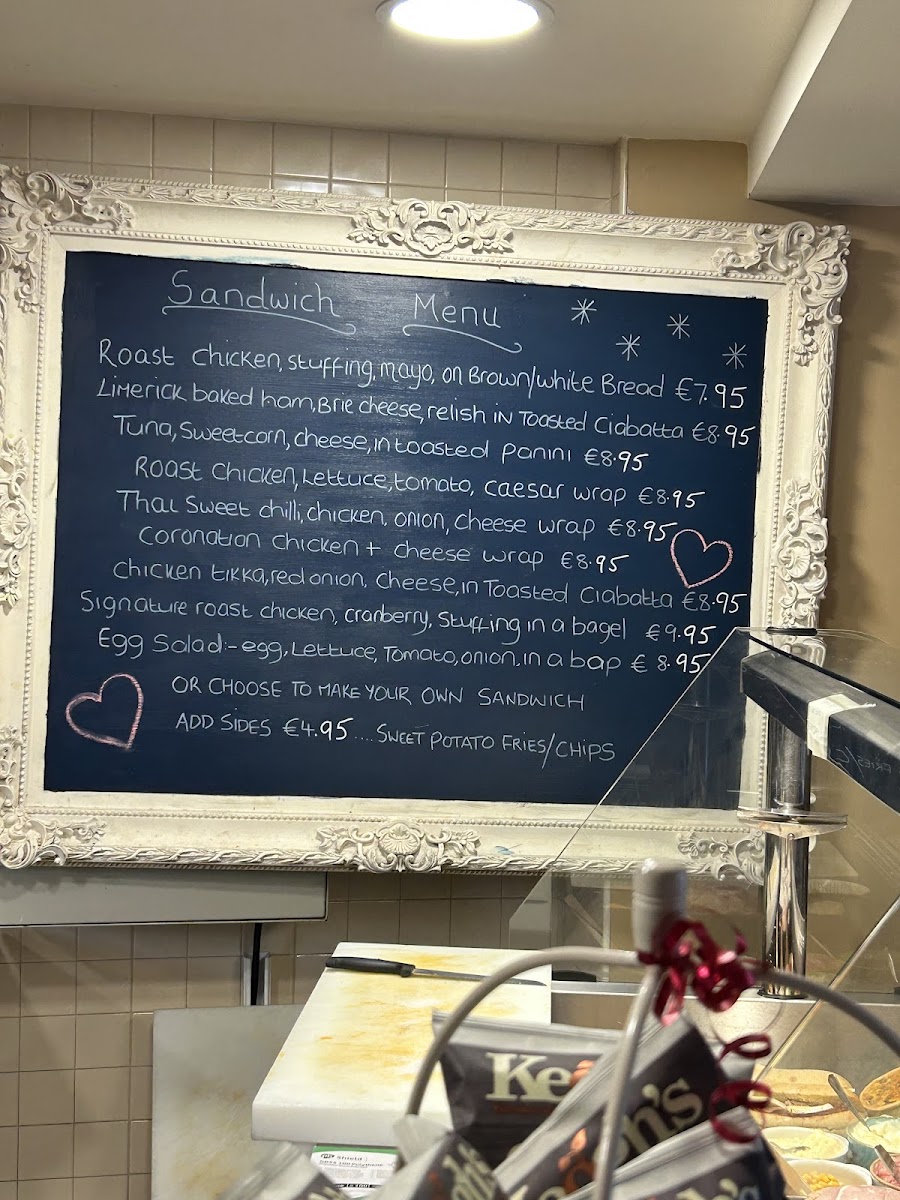 Sandwich Menu
Roast Chicken, stuffing, mayo, on Brown/white Bread €7.95
Limerick baked ham, Brie cheese, relish in Toasted Ciabatta €8.95
Tuna, Sweetcorn, cheese, in toasted panini €8.95
Roast Chicken, Lettuce, tomato, caesar wrap €8.95
Thai Sweet chilli, chicken, onion, cheese wrap €8.95
Coronation chicken + cheese wrap €8.95
chicken tikka, red onion, cheese, in Toasted Ciabatta €8.95
Signature roast chicken, cranberry, Stuffing in a bagel €9.95
Egg Salad:- egg, Lettuce, Tomato, onion, in a bap € 8.95
OR CHOOSE TO MAKE YOUR OWN SANDWICH
ADD SIDES €4.95 .... SWEET POTATO FRIES/CHIPS
Shield